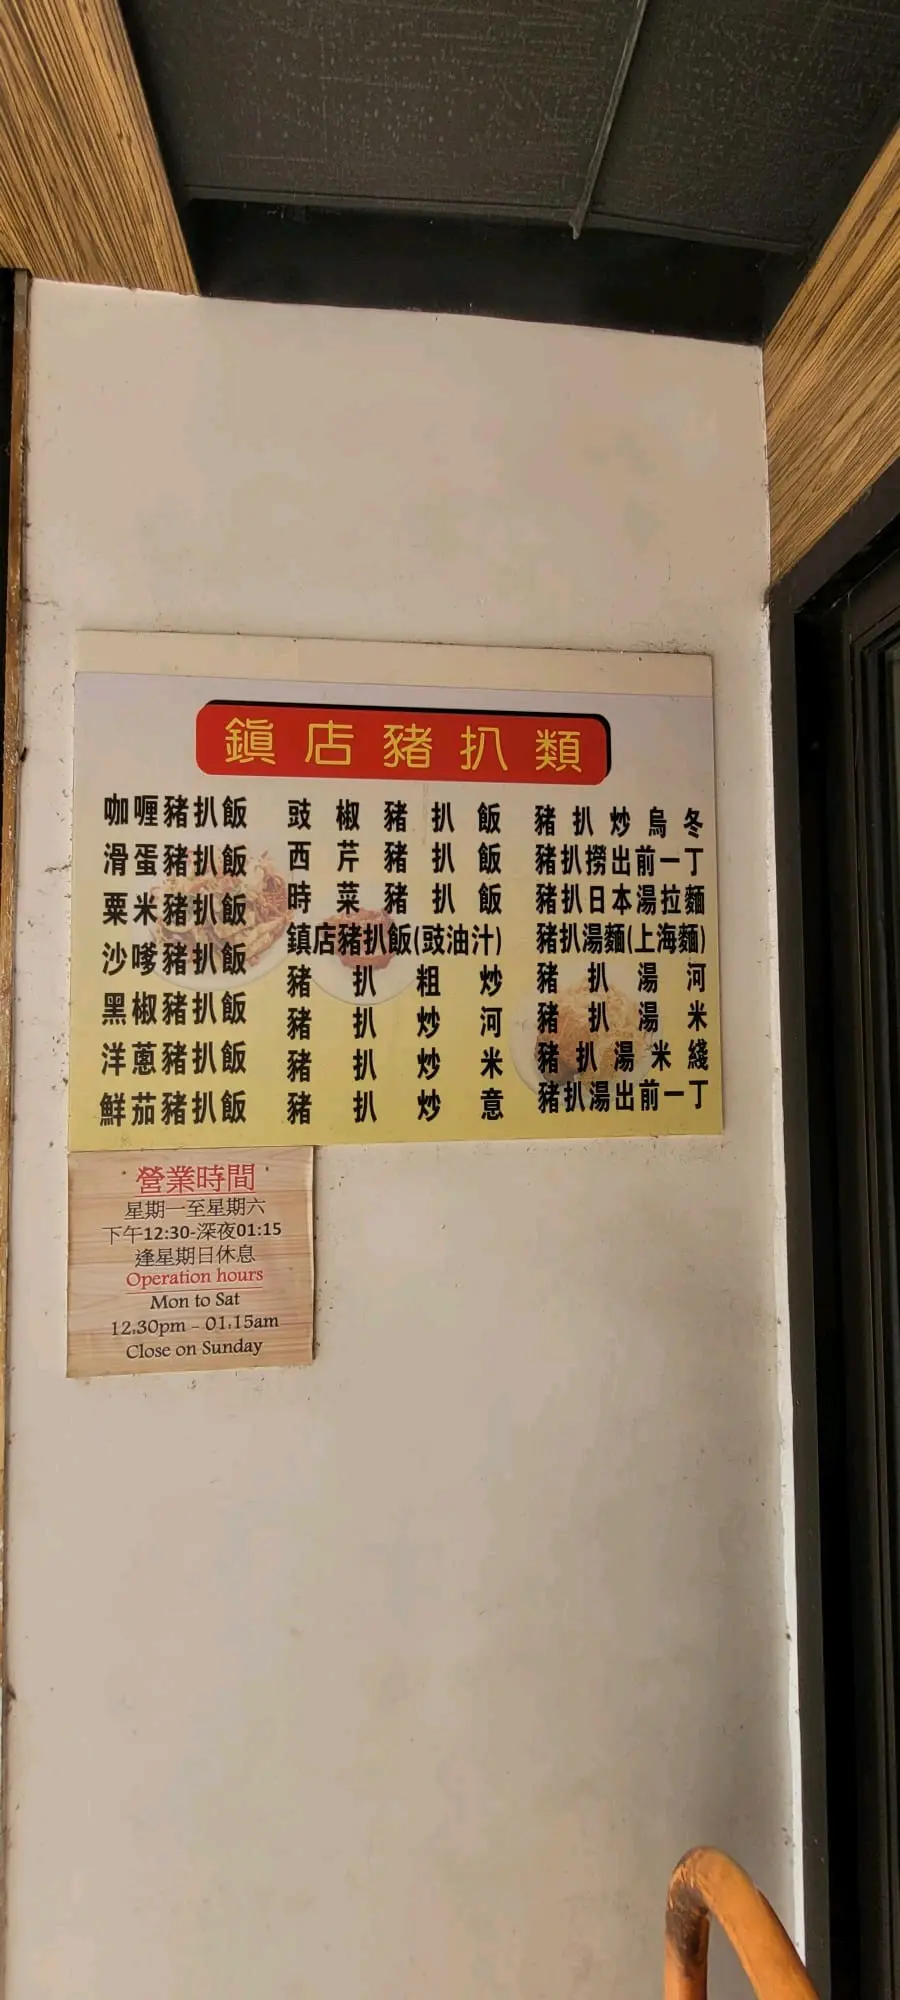 鎭店豬扒類
咖喱豬扒飯
滑蛋豬扒飯
粟米豬扒飯
沙嗲豬扒飯
黑椒豬扒飯
洋蔥豬扒飯
鮮茄豬扒飯
豉椒豬扒飯
西芹豬扒飯
時菜豬扒飯
鎭店豬扒飯(豉油汁)
豬扒粗炒
豬扒炒河
豬扒炒米
豬扒炒意
豬扒炒烏冬
豬扒撈出前一丁
豬扒日本湯拉麵
豬扒湯麵(上海麵)
豬扒湯河
豬扒湯米
豬扒湯米綫
豬扒湯出前一丁
營業時間
星期一至星期六
下午12:30-深夜01:15
逢星期日休息
Operation hours
Mon to Sat
12.30pm - 01.15am
Close on Sunday